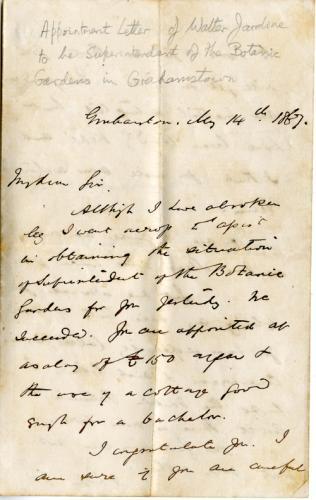 Appointment Letter of Walter Jardine
to be Superintendant of the Botanic
Gardens in Grahamstown
May 14th 1867.
My dear Sir.
Altho I have a broken
leg I went across to assist
in obtaining the situation
of Superintendent of the Botanic
Gardens for you yesterday. We
succeeded. You are appointed at
a salary of £150 a year &
the use of a cottage good
enough for a bachelor.
I congratulate you. I
am sure if you are careful